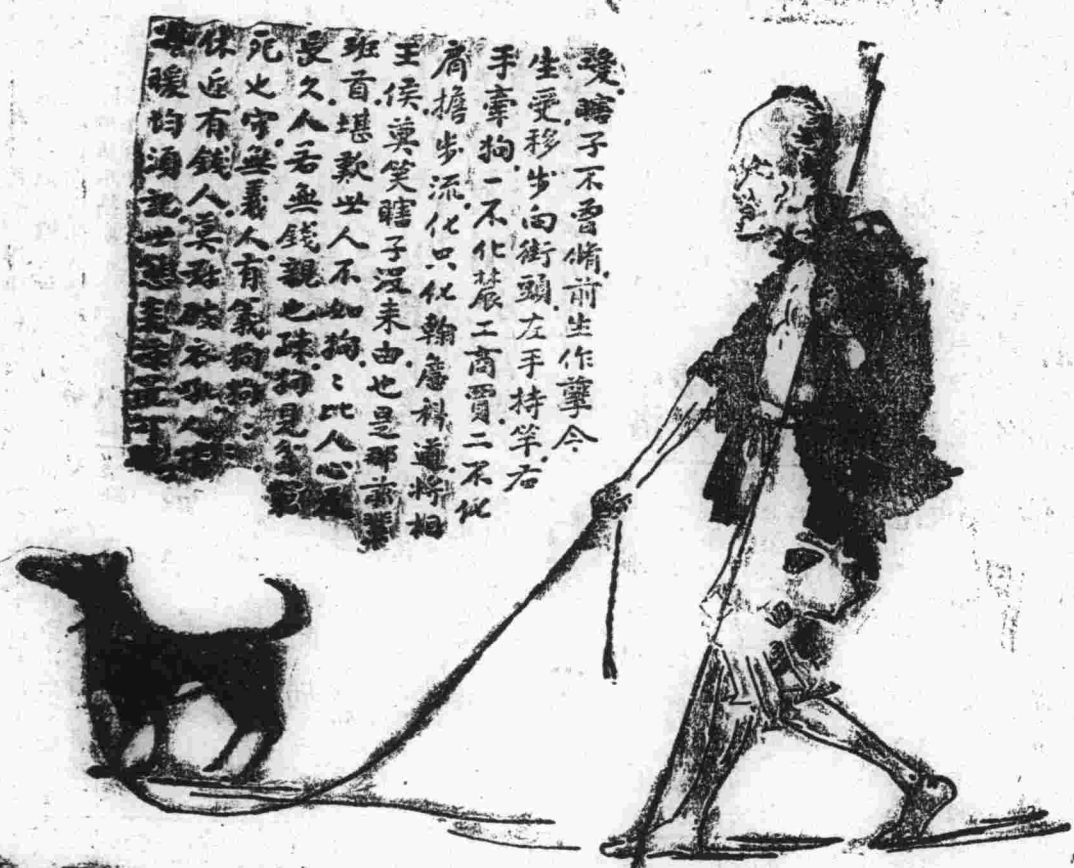 瞎子不曾脩前生作孽今
生受移步向街頭左手持竿右
手牽狗一不化農工商賈二不化
肩擔步流化只化翰詹科道將相
王侯莫笑瞎子沒來由也是那前輩
班首堪歎世人不如狗〻比人心
長久人若無錢親也疎狗見
死也守無義人有義狗狗
休近有錢人莫
暖均須記世態